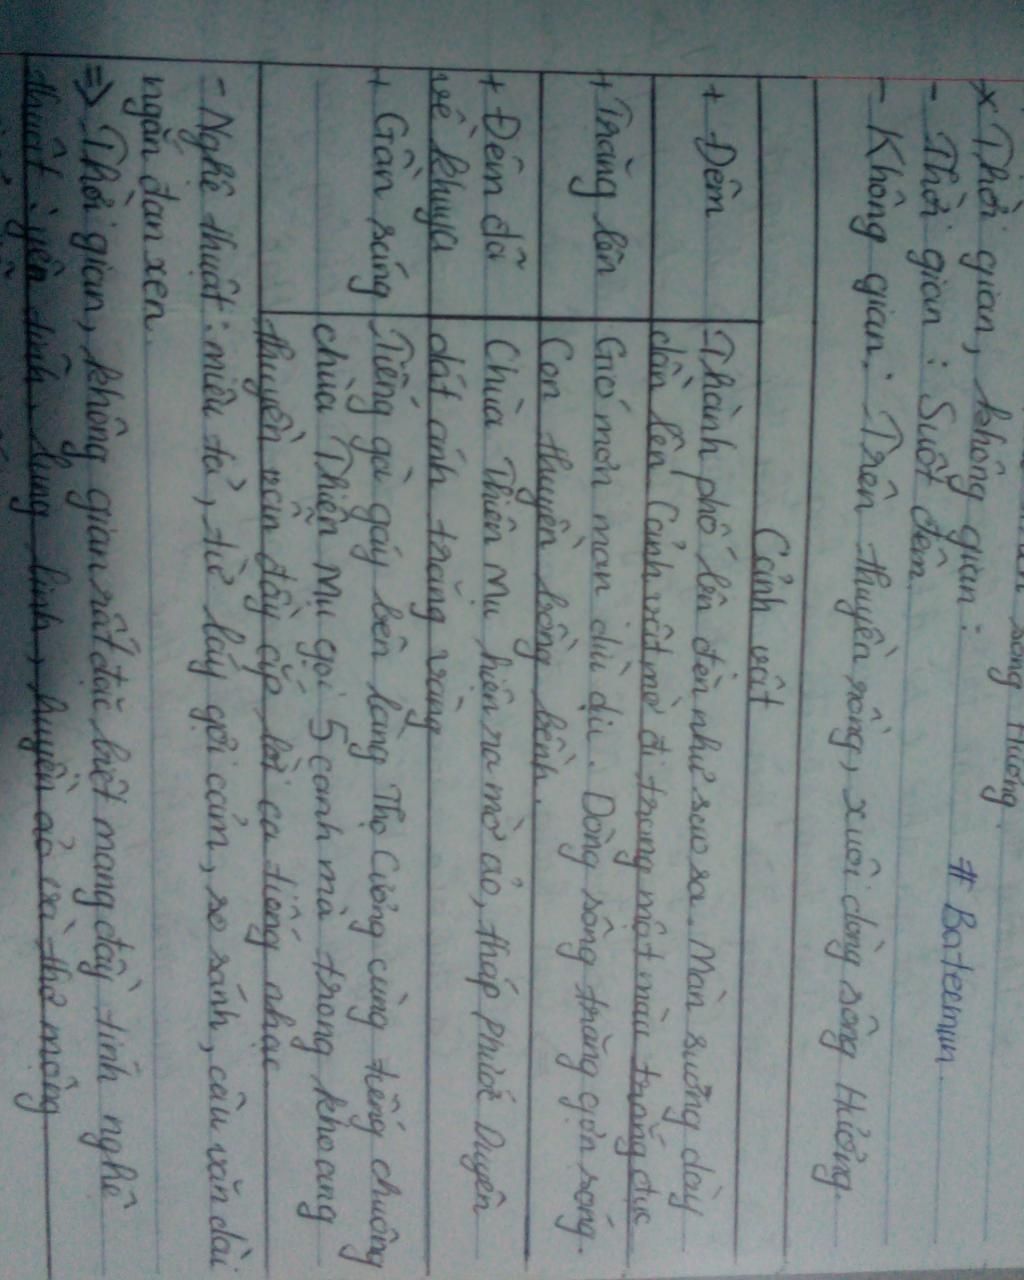 sông Hương.
* Thời gian, không gian:
- Thời gian : Suốt đêm. # Bateemun.
- Không gian: Trên thuyền rồng, xuôi dòng sông Hương.
Cảnh vật
+ Đêm
Thành phố lên đèn như sao sa. Màn sương dày
dần lên Cảnh vật mờ đi trong một màu trắng đục
+ Trăng lên
Gió mơn man dìu dịu. Dòng sông trăng gợn sóng.
Con thuyền bồng bềnh.
+ Đêm đã
về khuya
Chùa Thiên Mụ hiện ra mờ ảo, tháp Phước Duyên
dát ánh trăng vàng
+ Gần sáng
Tiếng gà gáy bên làng Thọ Cương cùng tiếng chuông
chùa Thiên Mụ gọi 5 canh mà trong khoang
thuyền vẫn đầy ắp lời ca tiếng nhạc
- Nghệ thuật: miêu tả, từ láy gợi cảm, so sánh, câu văn dài
ngắn đan xen.
=> Thời gian, không gian rất đặc biệt mang đầy tính nghệ
thuật: yên tĩnh, lung linh, huyền ảo và thơ mộng